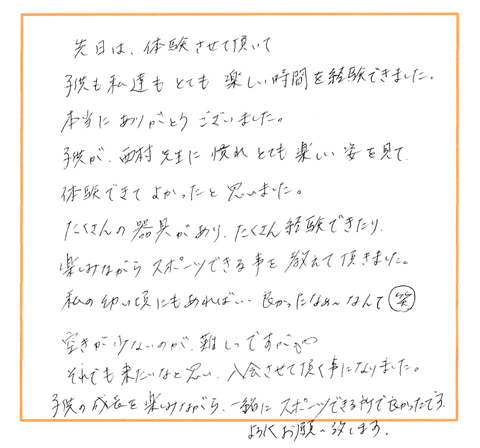 先日は、体験させて頂いて
子供も私達もとても楽しい時間を経験できました。
本当にありがとうございました。
子供が、西村先生に慣れとても楽しい姿を見て、
体験できてよかったと思いました。
たくさんの器具があり、たくさん経験できたり、
楽しみながらスポーツできる事を教えて頂きました。
私の幼い頃にもあれば… 良かったなぁ〜なんて(笑)
空きが少ないのが、難しいですが
それでも来たいなと思い、入会させて頂く事になりました。
子供の成長を楽しみながら、一緒にスポーツできる所で良かったです。
よろしくお願い致します。